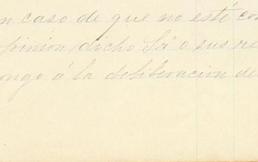 n caso de que no esté con
pinion, dicho Sr. o sus re
ongo á la deliberacion de